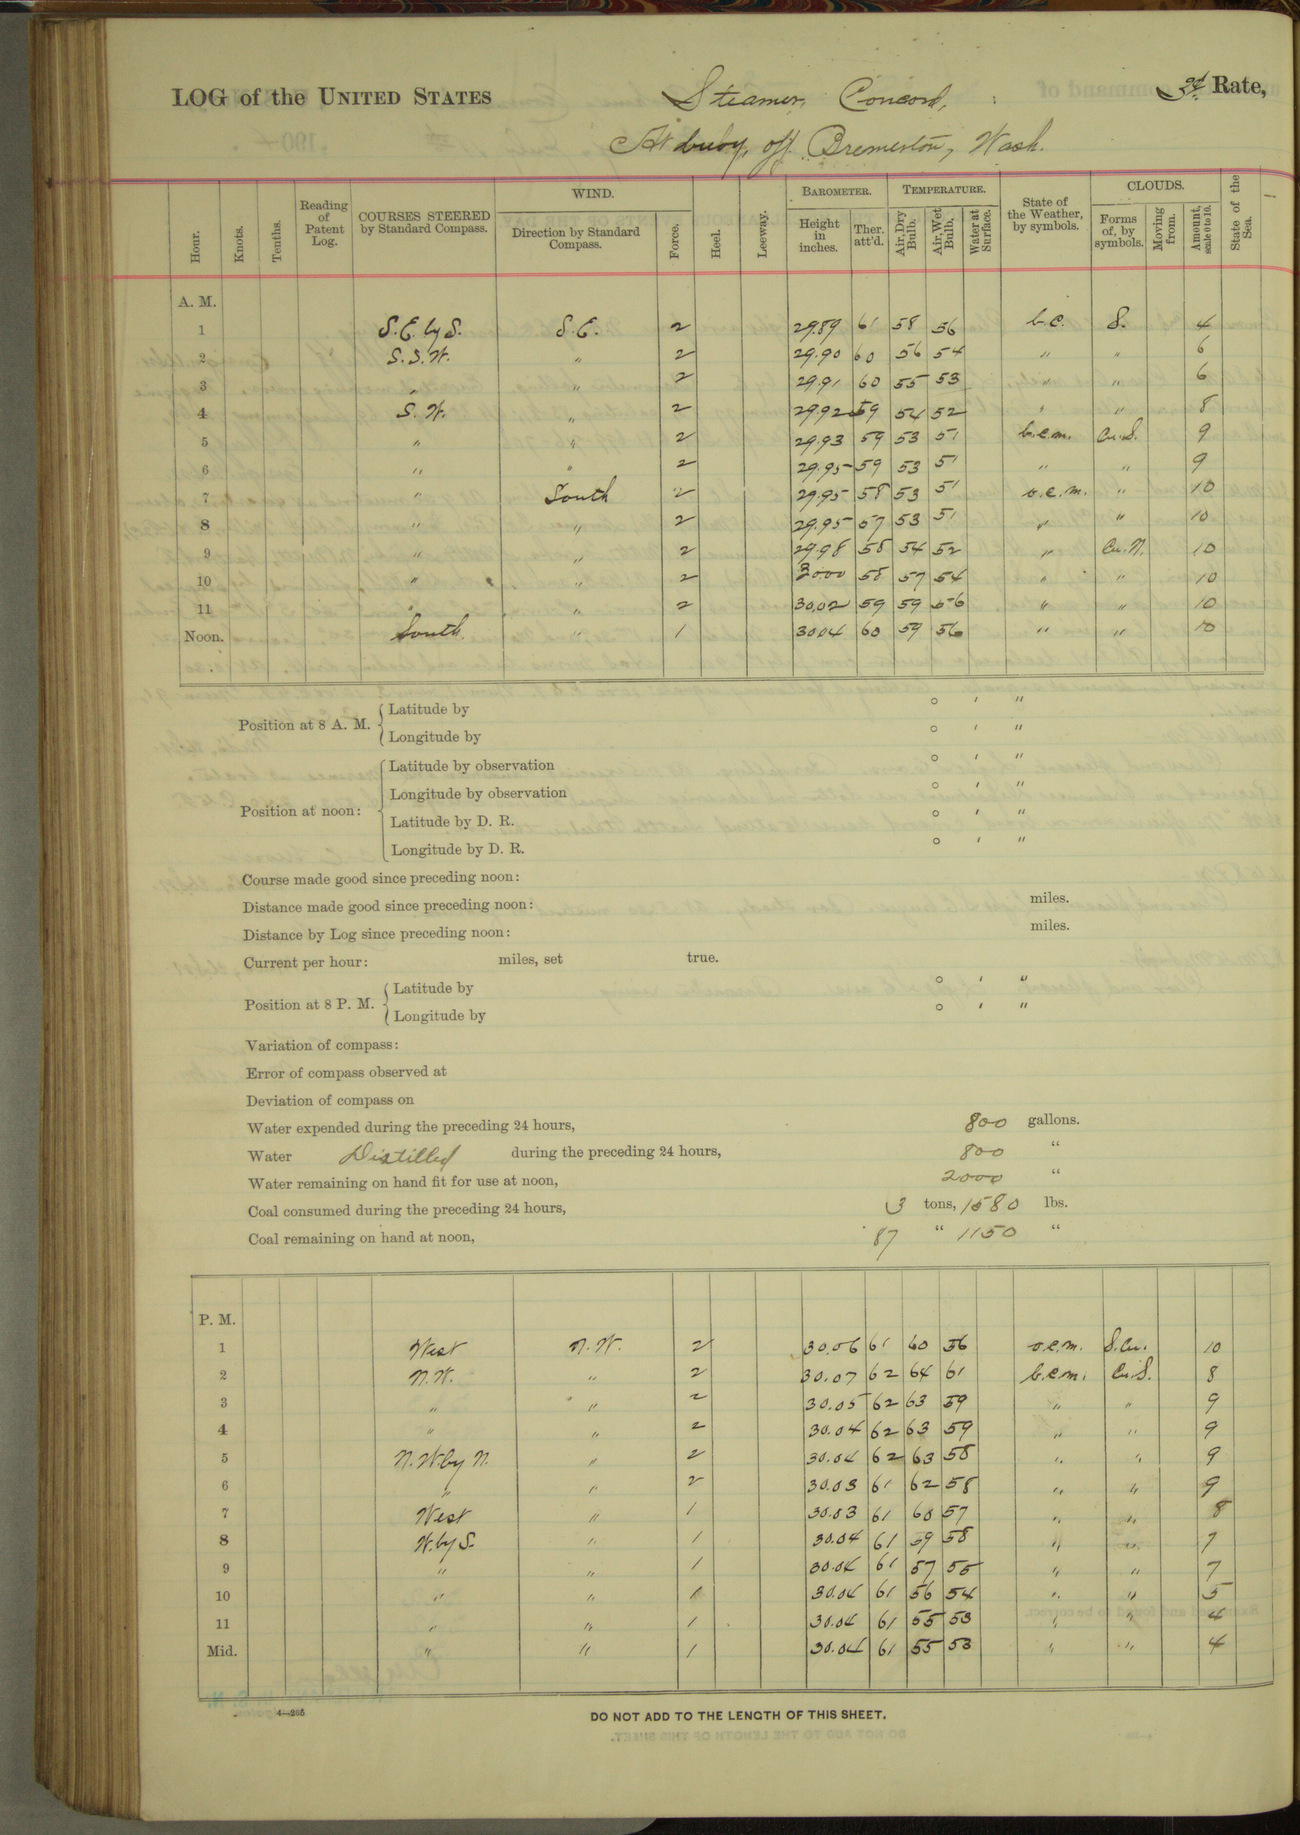 LOG of the UNITED STATES Steamer, Concord, 3d Rate,
At buoy, off Bremerton, Wash.
Hour. Knots. Tenths. Reading of Patent Log. COURSES STEERED by Standard Compass. WIND. Direction by Standard Compass. Force. Heel. Leeway. BAROMETER. Height in inches. Ther. att'd. TEMPERATURE. Air, Dry Bulb. Air, Wet Bulb. Water at Surface. State of the Weather, by symbols. CLOUDS. Forms of, by symbols. Moving from. Amount, scale 0 to 10. State of the Sea.
A. M.
1 S.E. by S. S.E. 2 29.89 61 58 56 b.c. S. 4
2 S.S.W. " 2 29.90 60 56 54 " " 6
3 " " 2 29.91 60 55 53 " " 6
4 S.W. " 2 29.92 59 54 52 " " 8
5 " " 2 29.93 59 53 51 b.c.m. Cu.S. 9
6 " " 2 29.95 59 53 51 " " 9
7 " South 2 29.95 58 53 51 o.c.m. " 10
8 " " 2 29.95 57 53 51 " " 10
9 " " 2 29.98 58 54 52 " Cu.N. 10
10 " " 2 3000 58 57 54 " " 10
11 " " 2 30.02 59 59 56 " " 10
Noon. South. " 1 3004 60 59 56 " " 10
Position at 8 A. M. Latitude by ° ' "
Longitude by ° ' "
Position at noon: Latitude by observation ° ' "
Longitude by observation ° ' "
Latitude by D. R. ° ' "
Longitude by D. R. ° ' "
Course made good since preceding noon:
Distance made good since preceding noon: miles.
Distance by Log since preceding noon: miles.
Current per hour: miles, set true.
Position at 8 P. M. Latitude by ° ' "
Longitude by ° ' "
Variation of compass:
Error of compass observed at
Deviation of compass on
Water expended during the preceding 24 hours, 800 gallons.
Water Distilled during the preceding 24 hours, 800 "
Water remaining on hand fit for use at noon, 2000 "
Coal consumed during the preceding 24 hours, 3 tons, 1580 lbs.
Coal remaining on hand at noon, 87 " 1150 "
P. M.
1 West N.W. 2 30.06 61 60 56 o.c.m. S.Cu. 10
2 N.W. " 2 30.07 62 64 61 b.c.m. Cu.S. 8
3 " " 2 30.05 62 63 59 " " 9
4 " " 2 30.04 62 63 59 " " 9
5 N.W. by N. " 2 30.04 62 63 58 " " 9
6 " " 2 30.03 61 62 58 " " 9
7 West " 1 30.03 61 60 57 " " 8
8 W. by S. " 1 30.04 61 59 58 " " 7
9 " " 1 30.04 61 57 55 " " 7
10 " " 1 30.04 61 56 54 " " 5
11 " " 1 30.04 61 55 53 " " 4
Mid. " " 1 30.04 61 55 53 " " 4
4—265
DO NOT ADD TO THE LENGTH OF THIS SHEET.